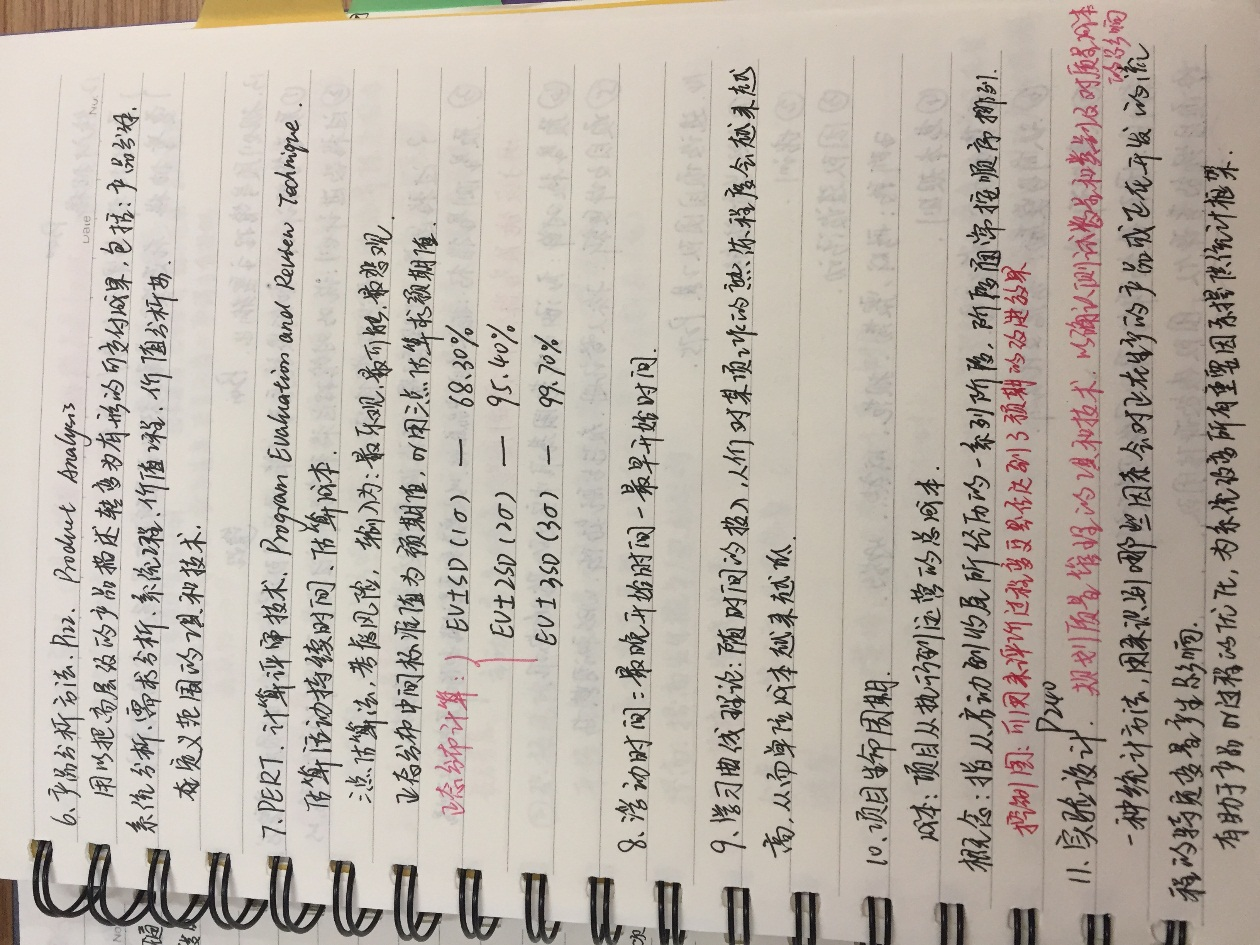 6、产品分析方法. P122. Product Analysis
用以把高层级的产品描述转变为有形的可交付成果, 包括: 产品分解.
系统分析、需求分析、系统工程、价值工程、价值分析等.
在定义范围的工具和技术.
7. PERT. 计算评审技术. Program Evaluation and Review Technique.
估算活动持续时间、估算成本.
三点估算法, 考虑风险, 输入为: 最乐观、最可能、最悲观.
正态分布中间标准值为预期值, 可用三点估算求预期值.
正态分布计算: } EV±SD (1σ) — 68.30%
EV±2SD (2σ) — 95.40%
EV±3SD (3σ) — 99.70%
8、浮动时间 = 最晚开始时间 - 最早开始时间.
9、学习曲线理论: 随时间的投入, 人们对某项工作的熟练程度会越来越
高, 从而单位成本越来越低.
10、项目生命周期
成本: 项目从执行到运营的总成本.
概念: 指从启动到收尾所经历的一系列阶段, 阶段通常按顺序排列.
控制图: 可用来评价过程变更是否达到了预期的改进效果
11、实验设计. P240 规划质量管理的工具和技术. 以确认测试数量和类别及对质量成本
的影响
一种统计方法, 用来识别哪些因素会对正在生产的产品或正在开发的流
程的特定变量产生影响.
有助于产品或过程的优化, 为系统改变所有重要因素提供统计框架.